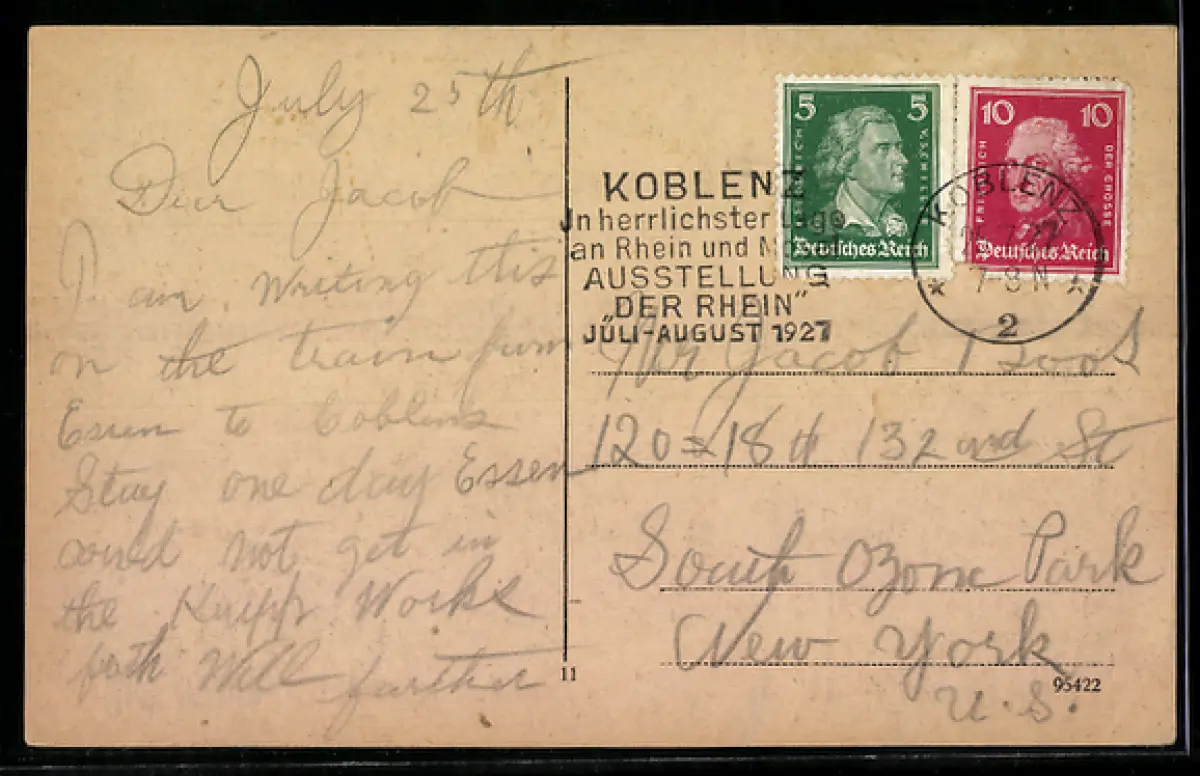 July 25th
Dear Jacob
I am writing this
on the train from
Essen to Coblenz
Stay one day Essen
could not get in
the Krupp Works
Will further
11
KOBLENZ
Jn herrlichster Lage
an Rhein und
AUSSTELLUNG
„DER RHEIN"
JULI-AUGUST 1927
5 5
Deutsches Reich
10 10
FRIEDRICH DER GROSSE
Deutsches Reich
KOBLENZ
7-8 N
* *
2
Mr Jacob
120=18 132nd St
South Ozone Park
New York
U.S.
95422